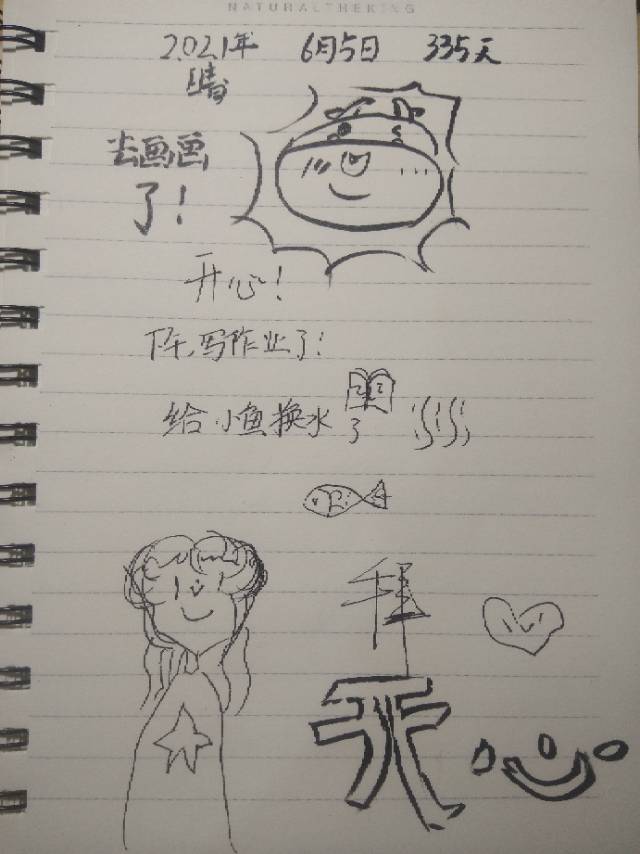 NATURALTHEKING
2021年 6月5日 335天
晴
去画画
了!
开心!
下午,写作业了!
给小鱼换水了
开心